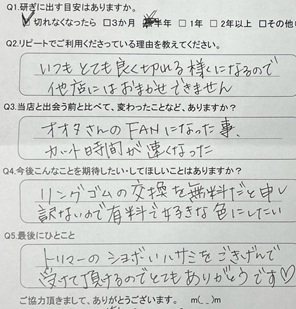 Q1.研ぎに出す目安はありますか。
切れなくなったら □3か月 半年 □1年 □2年以上 □その他
Q2.リピートでご利用くださっている理由を教えてください。
いつもとても良く切れる様になるので
他店にはおまかせできません
Q3.当店と出会う前と比べて、変わったことなど、ありますか?
オオタさんのFANになった事、
カット時間が速くなった
Q4.今後こんなことを期待したい・してほしいことはありますか?
リングゴムの交換を無料だと申し
訳ないので有料で好きな色にしたい
Q5.最後にひとこと
トリマーのショボいハサミをごきげんで
受けて頂けるのでとてもありがとうです♡
ご協力頂きまして、ありがとうございます。 m(_ _)m